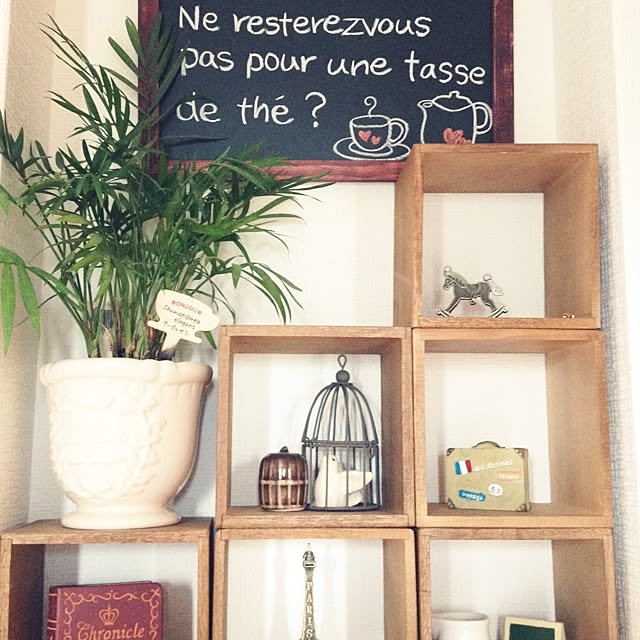 Ne resterezvous
pas pour une tasse
de thé ?
BONJOUR
Chamaedorea
elegans
Chronicle
VOYAGE
53
PARIS